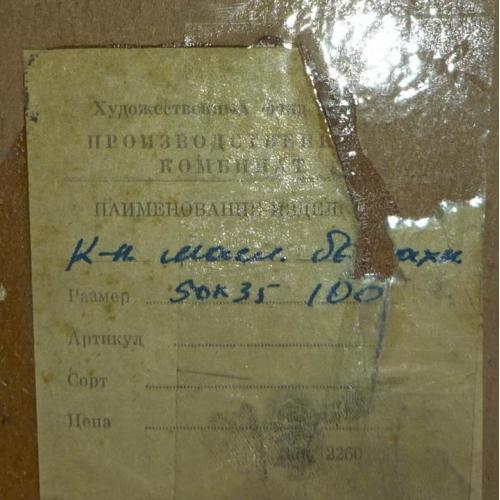 Художественный фонд
ПРОИЗВОДСТВЕНН
КОМБИНАТ
НАИМЕНОВАНИЕ ИЗДЕЛ
К-н масл.
Размер 50х35 100
Артикул
Сорт
Цена
2260